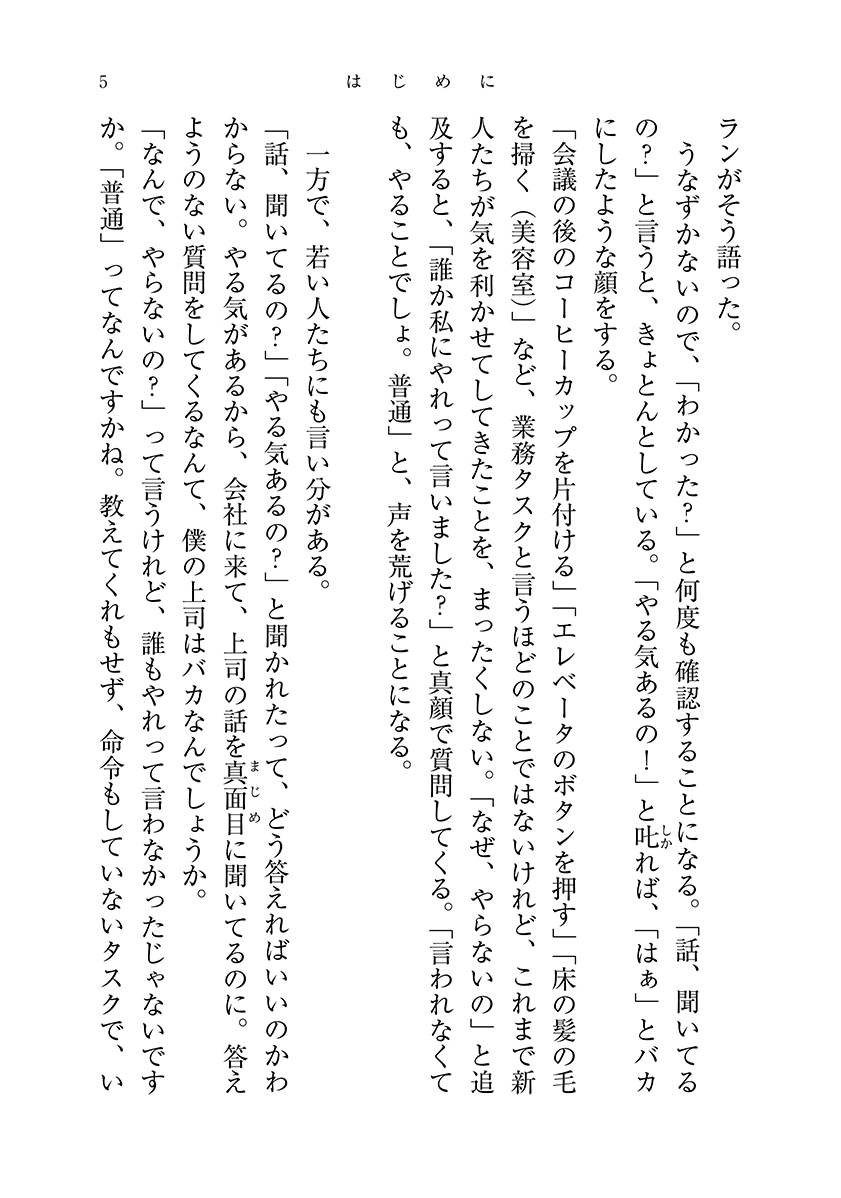 5
はじめに
ランがそう語った。
うなずかないので、「わかった？」と何度も確認することになる。「話、聞いてる
の？」と言うと、きょとんとしている。「やる気あるの！」と叱れば、「はぁ」とバカ
にしたような顔をする。
「会議の後のコーヒーカップを片付ける」「エレベータのボタンを押す」「床の髪の毛
を掃く（美容室）」など、業務タスクと言うほどのことではないけれど、これまで新
人たちが気を利かせてしてきたことを、まったくしない。「なぜ、やらないの」と追
及すると、「誰か私にやれって言いました？」と真顔で質問してくる。「言われなくて
も、やることでしょ。普通」と、声を荒げることになる。
一方で、若い人たちにも言い分がある。
「話、聞いてるの？」「やる気あるの？」と聞かれたって、どう答えればいいのかわ
からない。やる気があるから、会社に来て、上司の話を真面目に聞いてるのに。答え
ようのない質問をしてくるなんて、僕の上司はバカなんでしょうか。
「なんで、やらないの？」って言うけれど、誰もやれって言わなかったじゃないです
か。「普通」ってなんですかね。教えてくれもせず、命令もしていないタスクで、い